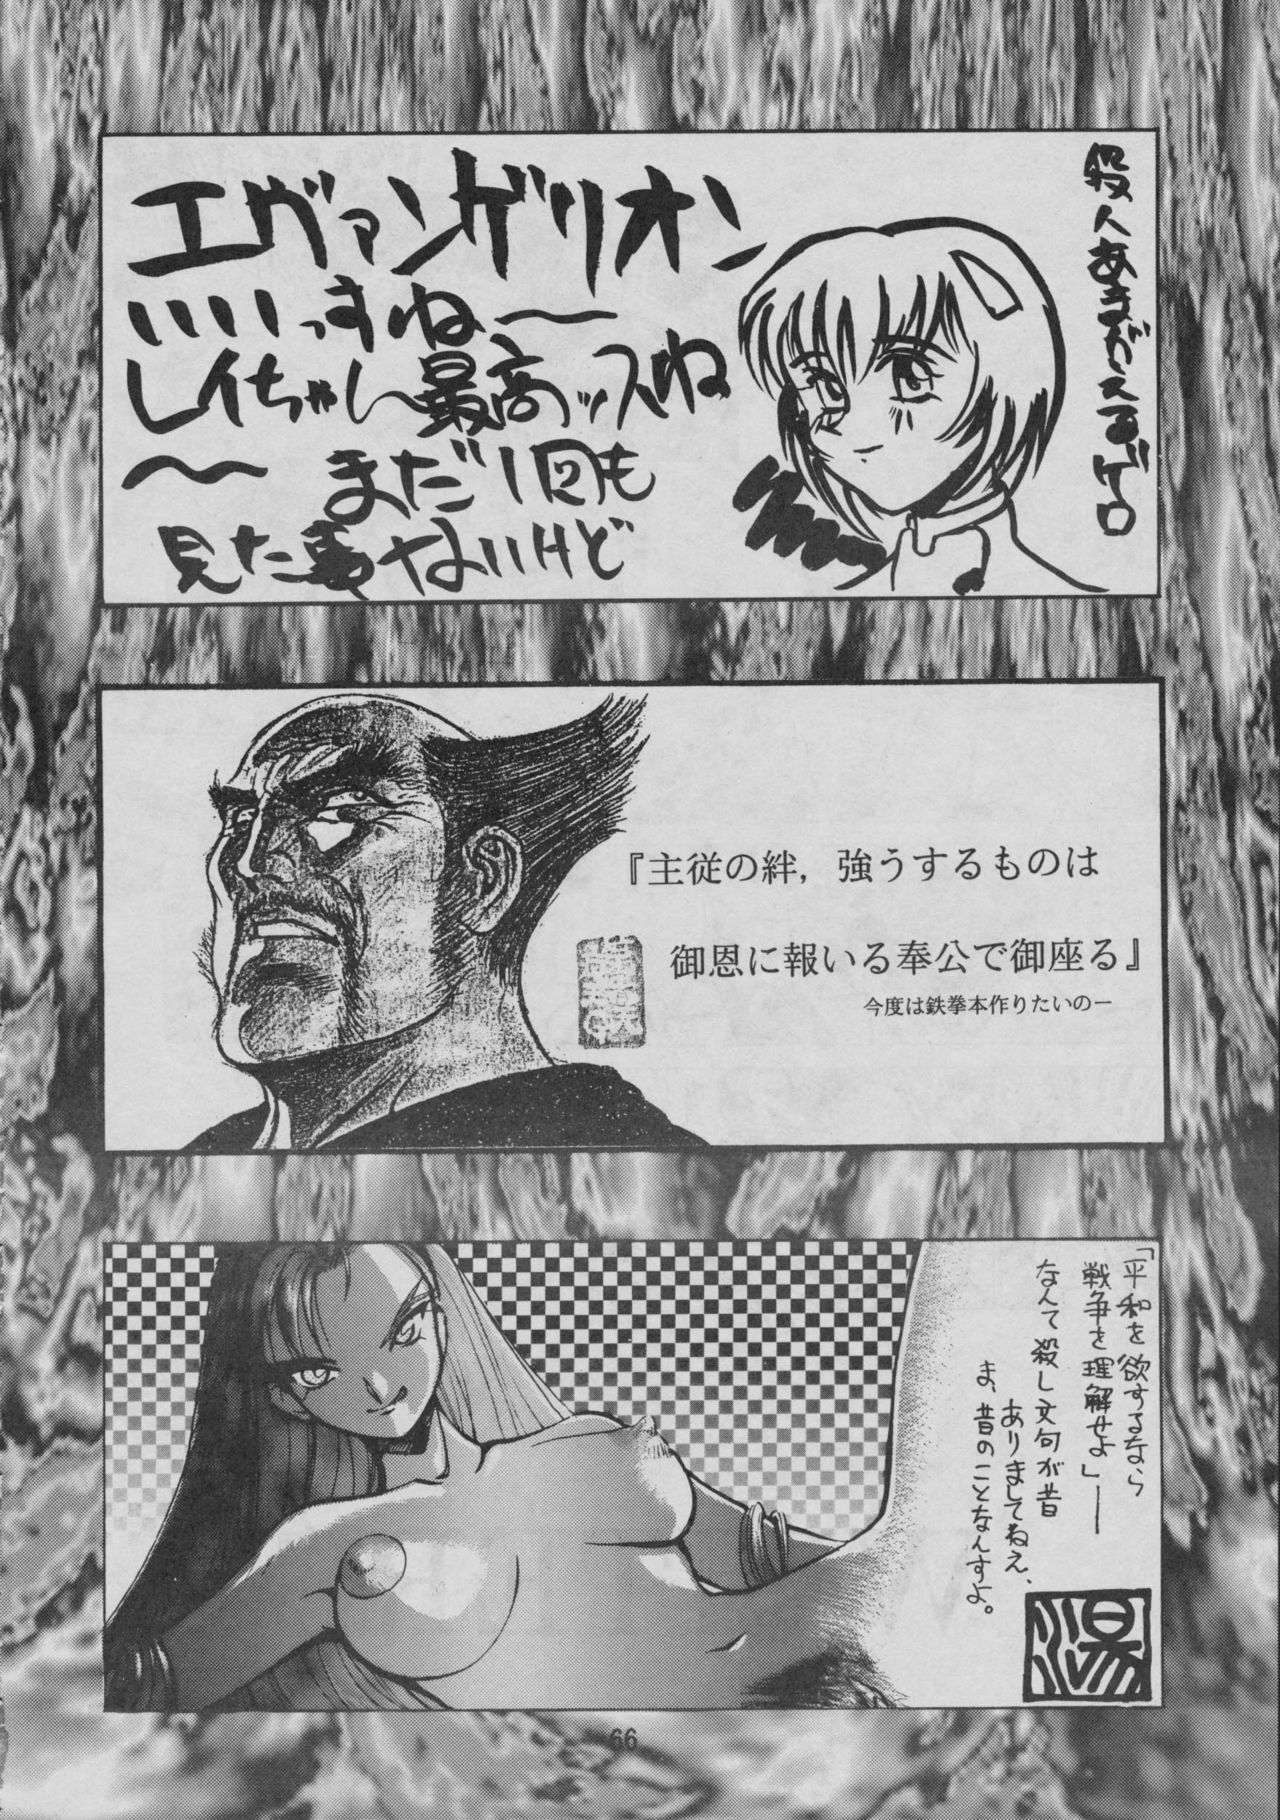 エヴァンゲリオン
いいっすね〜
レイちゃん最高ッスね
〜まだ1回も
見た事ないけど
殺人あまがえるゲロ
『主従の絆，強うするものは
御恩に報いる奉公で御座る』
今度は鉄拳本作りたいのー
「平和を欲するなら
戦争を理解せよ」──
なんて殺し文句が昔
ありましてねえ、
ま、昔のことなんすよ。
湯
66